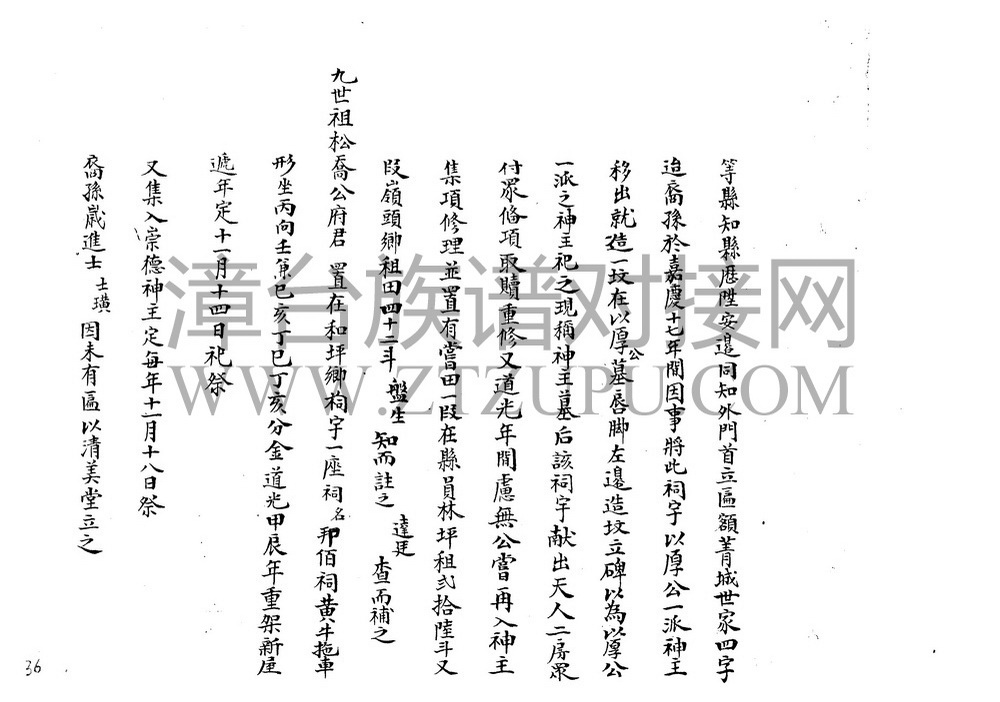 等縣知縣歷陞安邉同知外門首立區額菁城世家四字
迨裔孫於嘉慶十七年間因事將此祠字以厚公一派神主
移出就造一坟在以厚公墓唇脚左邊造坟立碑以為以厚公
一派之神主祀之現稱神主墓后該祠宇献出天人二房眾
付眾俻項取贖重修又道光年間慮無公嘗再入神主
集項修理並置有嘗田一叚在縣員林坪租弍拾陸斗又
叚嶺頭鄉租田四十二斗 盤生 知而註之 達廷 查而補之
九世祖松喬公府君 置在和坪鄉祠宇一座祠名 邦佰祠黄牛拖車
形坐丙向壬兼巳亥丁巳丁亥分金道光甲辰年重架新屋
遞年定十一月十四日祀祭
又集入崇德神主定每年十二月十八日祭
裔孫歲進士 士璜 因未有區以清美堂立之
36
漳台族谱对接网
WWW.ZTZUPU.COM